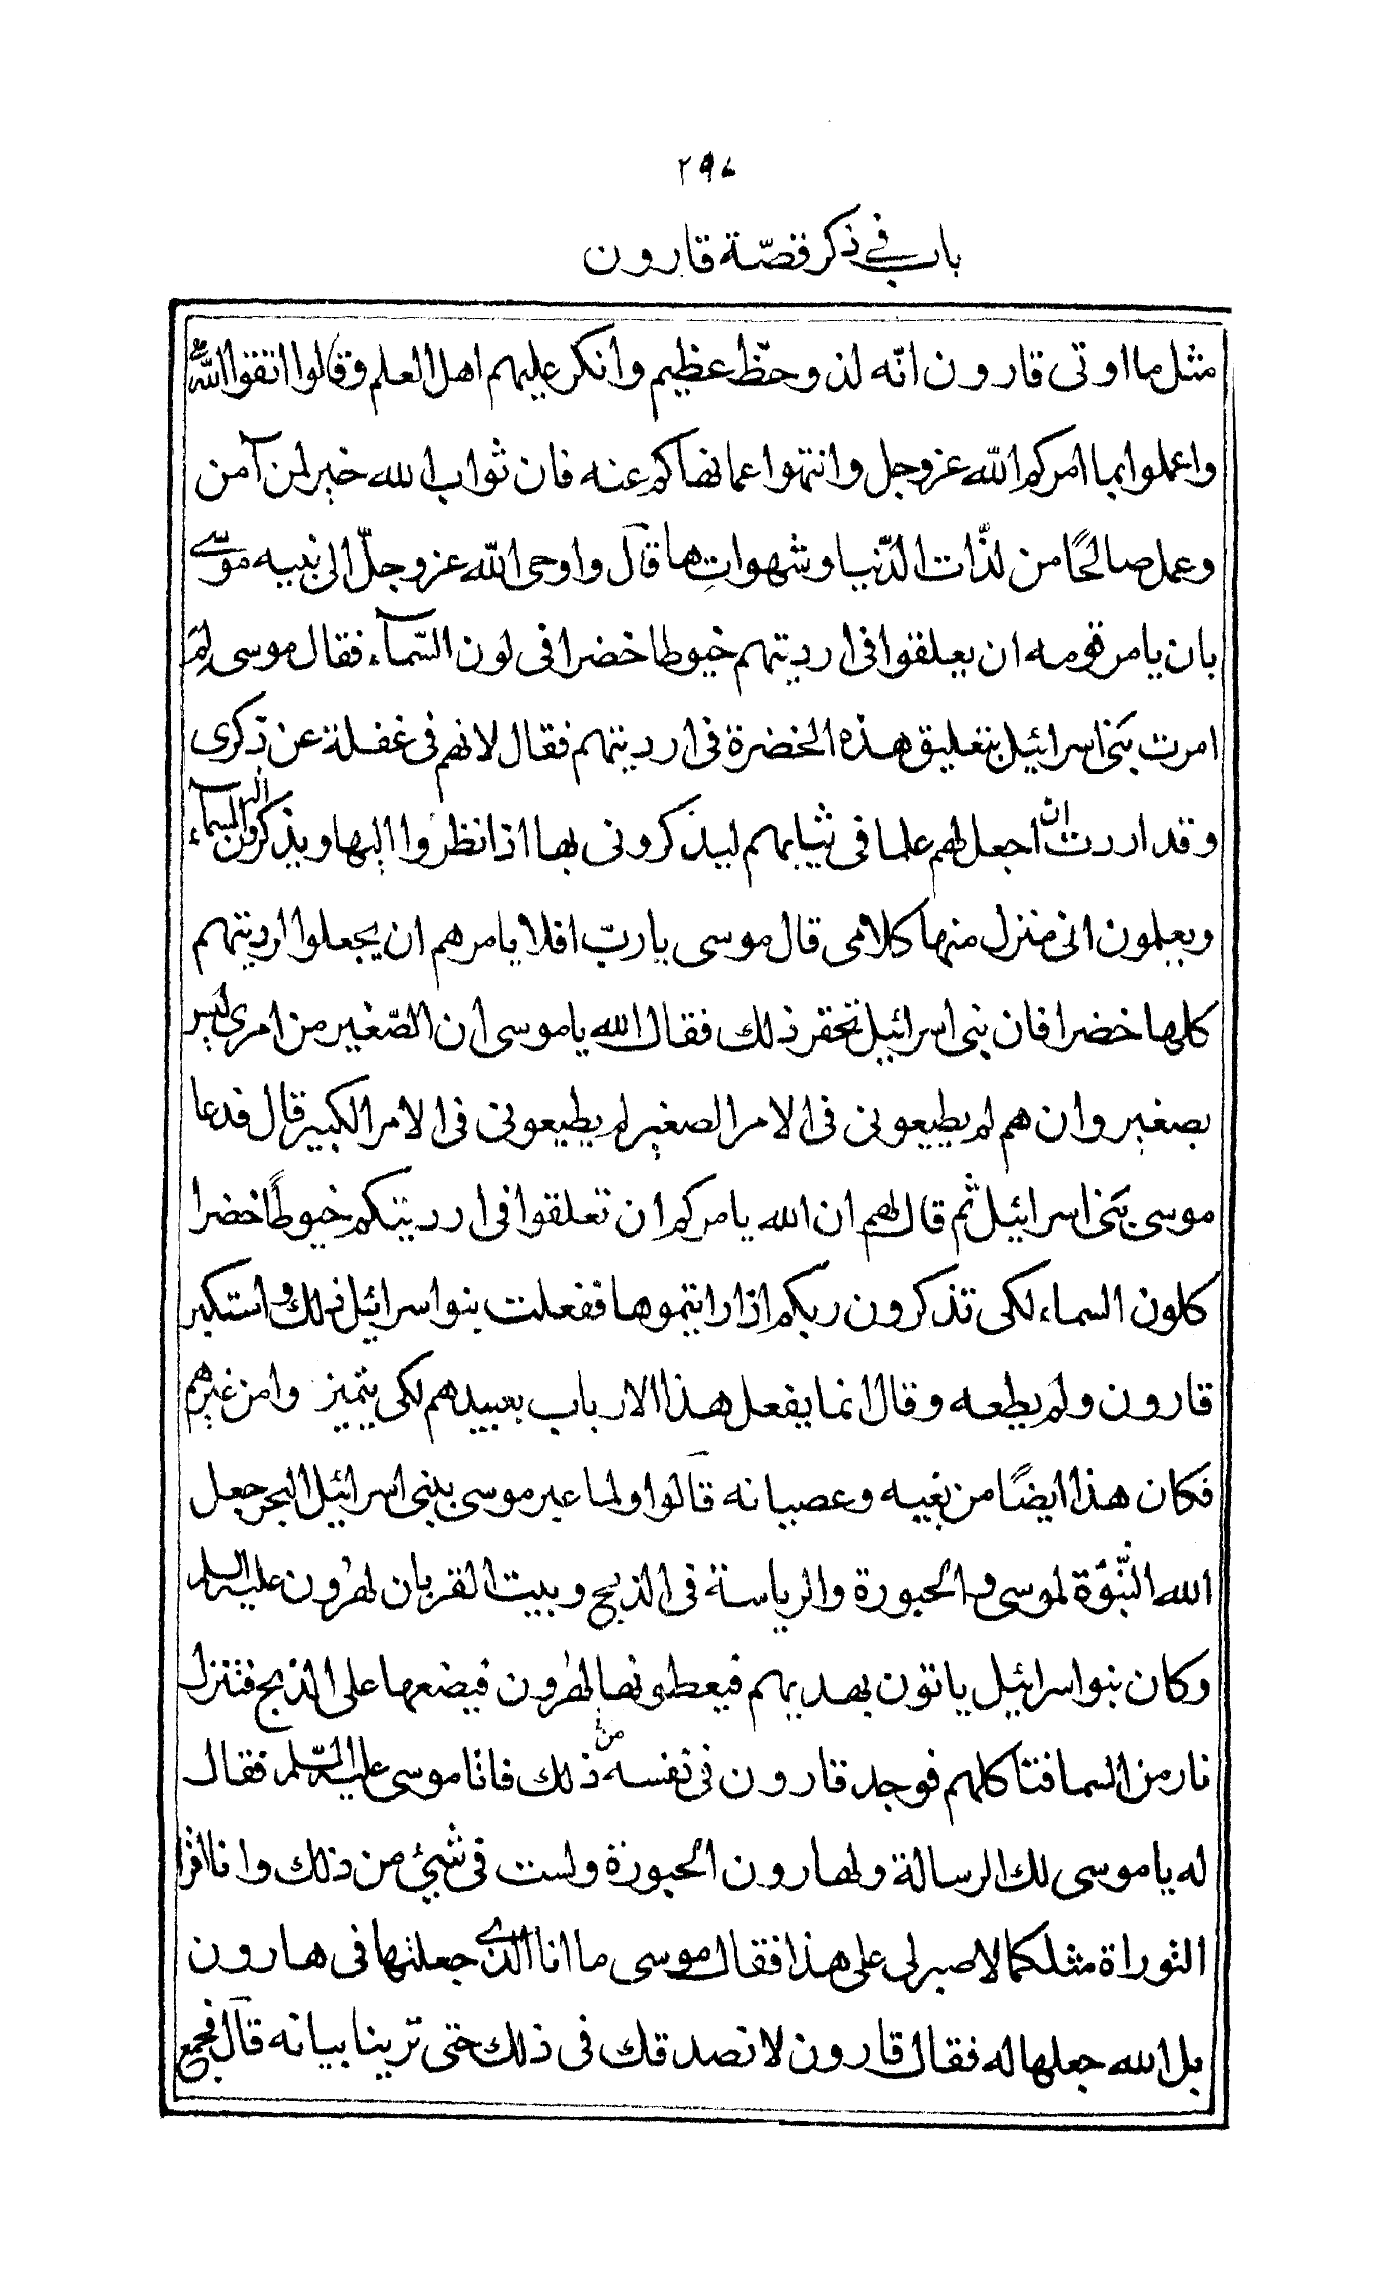 ٢٩٧
باب في ذكر قصّة قارون
مثل ما اوتى قارون انّه لذو حظّ عظيم وانكر عليهم اهل العلم وقالوا اتقوا اللّه
واعملوا بما امركم اللّه عز وجل وانتهوا عما نهاكم عنه فان ثواب الله خير لمن آمن
وعمل صالحًا من لذّات الدّنيا وشهواتها قال واوحى اللّه عز وجلّ الى نبيه موسى
بان يامر قومه ان يعلقوا فى ارديتهم خيوطا خضرا فى لون السّمآء فقال موسى لِمَ
امرت بَنى اسرائيل بتعليق هذه الخضرة فى ارديتهم فقال لانهم فى غفلة عن ذكرى
وقد اردت ان اجعل لهم علما فى ثيابهم ليذكرونى بها اذا نظروا اليها ويذكرون السمآء
ويعلمون انى منزل منها كلامى قال موسى يا ربّ افلا يامرهم ان يجعلوا ارديتهم
كلها خضرا فان بنى اسرائيل تحقر ذلك فقال الله يا موسى ان الصّغير من امرى ليس
بصغير وان هم لم يطيعونى فى الامر الصغير لم يطيعونى فى الامر الكبير قال فدعا
موسى بَنى اسرائيل ثم قال لهم ان الله يامركم ان تعلقوا فى ارديتكم خيوطًا خضرا
كلون السماء لكى تذكرون ربكم اذا رايتموها ففعلت بنو اسرائيل ذلك واستكبر
قارون ولم يطعه وقال انما يفعل هذا الارباب بعبيدهم لكى يتميز وا من غيرهم
فكان هذا ايضًا من بغيه وعصيانه قالوا ولما عبر موسى ببنى اسرائيل البحر جعل
الله النّبوّة لموسى والحبورة والرياسة فى الذبح وبيت القربان لهرون عليه السلم
وكان بنو اسرائيل ياتون بهديهم فيعطونها لهرون فيضعها على الذبح فتنزل
نار من السما فتاكلهم فوجد قارون فى نفسه من ذلك فاتا موسى عليه السّلم فقال
له يا موسى لك الرسالة ولهارون الحبورة ولست فى شيئ من ذلك وانا اقرا
التوراة مثلكما لا صبر لى على هذا فقال موسى ما انا الذى جعلتها فى هارون
بل الله جعلها له فقال قارون لا نصدقك فى ذلك حتى ترينا بيانه قال فجمع